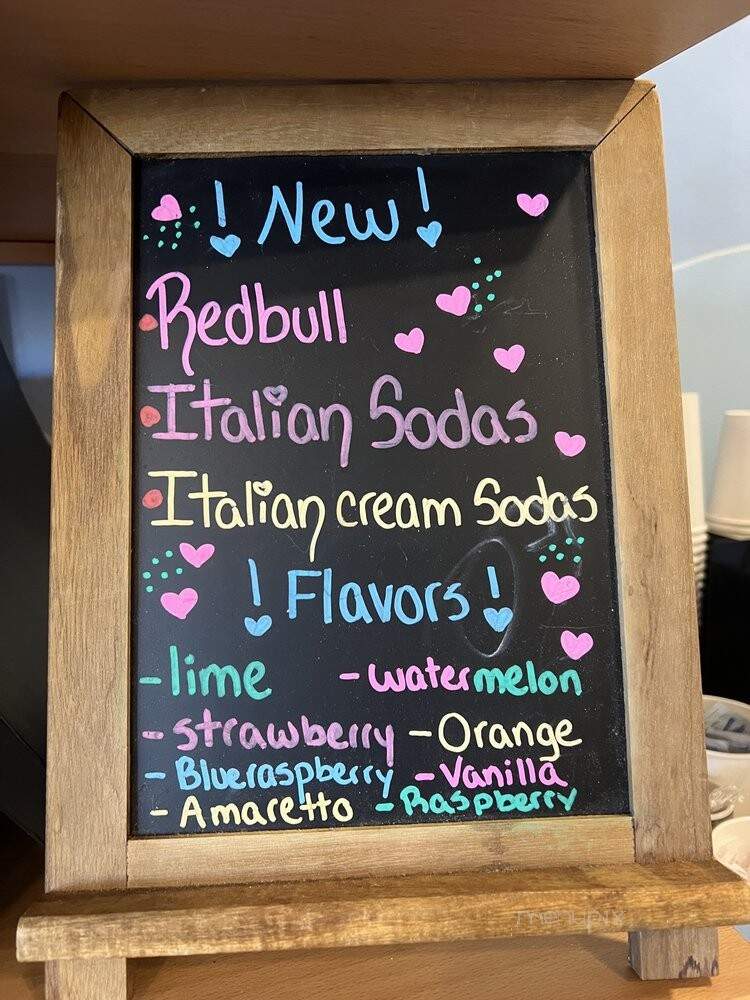 ! New !
Redbull
Italian Sodas
Italian cream Sodas
! Flavors !
- lime - watermelon
- strawberry - Orange
- Blueraspberry - Vanilla
- Amaretto - Raspberry
menupix